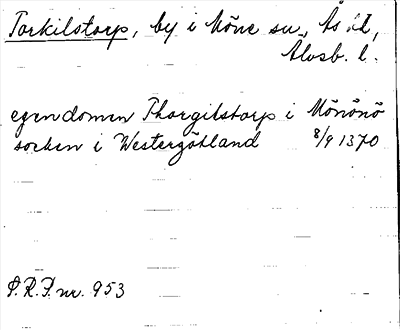 Torkilstorp, by i Möne sn, Ås hd,
Älvsb. l.
egendomen Thorgilstorp i Mönönö
socken i Westergötland 8/9 1370
P.R.P. nr. 953